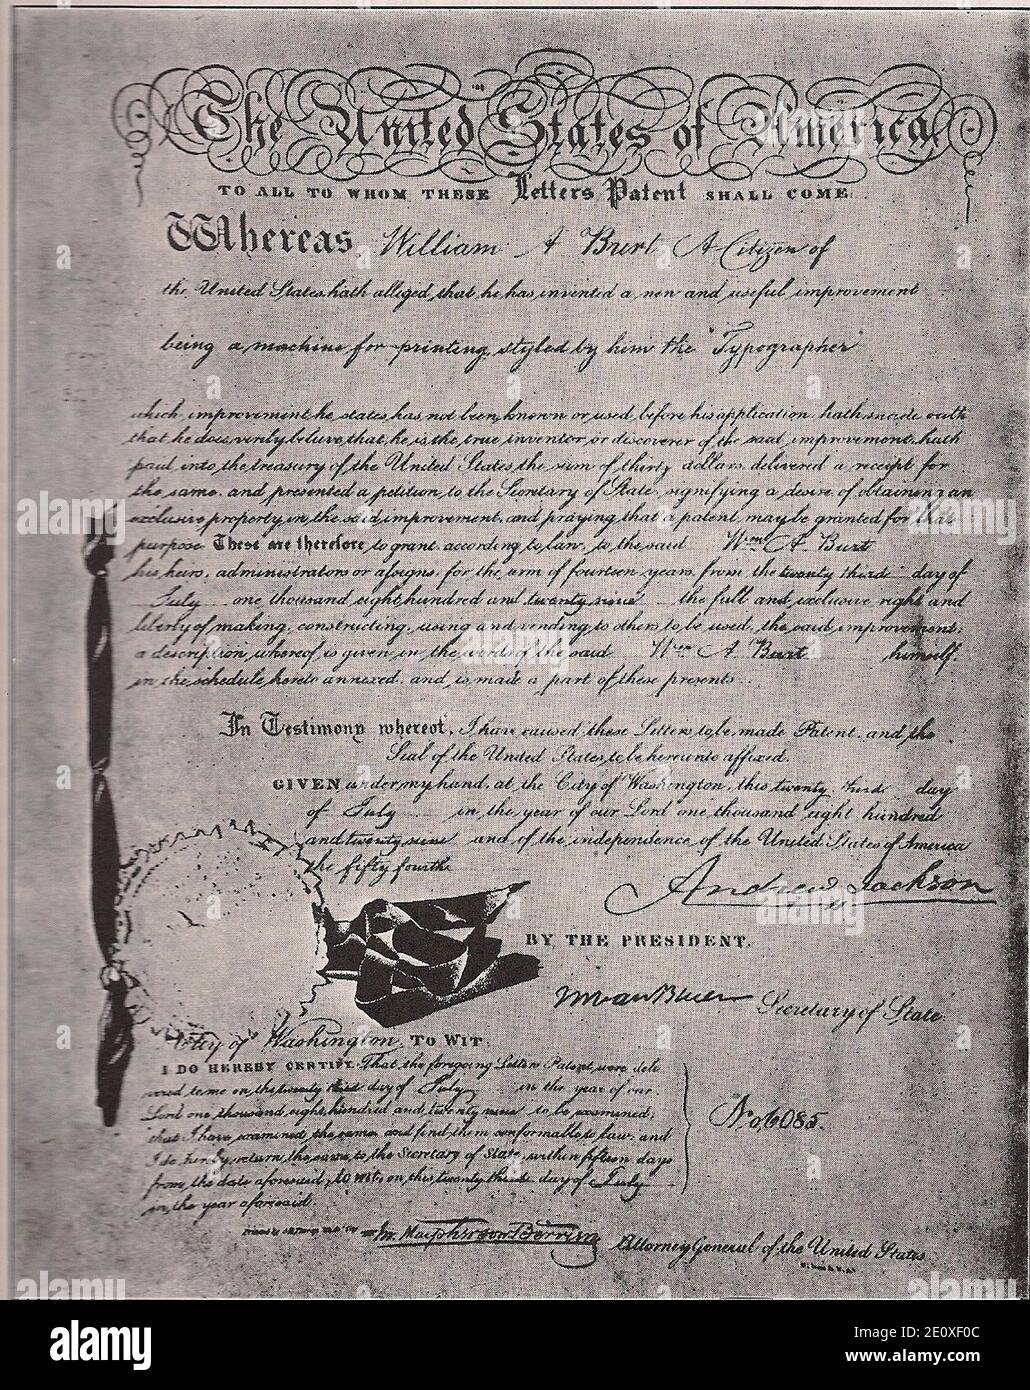 The United States of America,
TO ALL TO WHOM THESE Letters Patent SHALL COME:
Whereas William A Burt A Citizen of
the United States hath alleged that he has invented a new and useful improvement
being a machine for printing, styled by him the "Typographer"
which improvement he states has not been known or used before his application hath made oath
that he does verily believe that he is the true inventor or discoverer of the said improvement hath
paid into the treasury of the United States the sum of thirty dollars delivered a receipt for
the same and presented a petition to the Secretary of State, signifying a desire of obtaining an
exclusive property in the said improvement, and praying that a patent may be granted for that
purpose These are therefore to grant according to law to the said Wm A Burt
his heirs, administrators or assigns for the term of fourteen years from the twenty third day of
July one thousand eight hundred and twenty nine the full and exclusive right and
liberty of making, constructing, using and vending to others to be used the said improvement,
a description whereof is given in the words of the said Wm A Burt himself,
in the schedule hereto annexed and is made a part of these presents.
In Testimony whereof, I have caused these Letters to be made Patent and the
Seal of the United States to be hereunto affixed.
GIVEN under my hand, at the City of Washington, this twenty third day
of July in the year of our Lord one thousand eight hundred
and twenty nine and of the independence of the United States of America
the fifty fourth
Andrew Jackson
BY THE PRESIDENT.
M Van Buren Secretary of State
City of Washington, TO WIT:
I DO HEREBY CERTIFY, That the foregoing Letters Patent were deli
vered to me on the twenty third day of July in the year of our
Lord one thousand eight hundred and twenty nine to be examined,
that I have examined the same and find them conformable to law, and
I do hereby return the same to the Secretary of State, within fifteen days
from the date aforesaid, to wit, on this twenty third day of July
in the year aforesaid.
No, 6085.
Jn. Macpherson Berrien
Attorney General of the United States
alamy
Image ID: 2E0XF0C
www.alamy.com